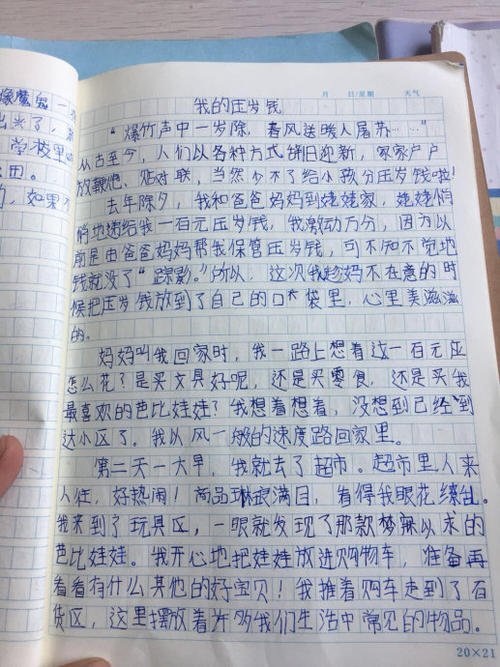 像魔鬼一
出来了，
学校里
田。
的，如果不
月 日/星期 天气
我的压岁钱
“爆竹声中一岁除，春风送暖入屠苏……”
从古至今，人们以各种方式辞旧迎新，家家户户
放鞭炮、贴对联，当然少不了给小孩分压岁钱啦！
去年除夕，我和爸爸妈妈到姥姥家，姥姥悄
悄地递给我一百元压岁钱，我激动万分，因为以
前是由爸爸妈妈帮我保管压岁钱，可不知不觉地
钱就没了“踪影。”所以，这次我趁妈不在意的时
候把压岁钱放到了自己的口袋里，心里美滋滋
的。
妈妈叫我回家时，我一路上想着这一百元应
怎么花？是买文具好呢，还是买零食，还是买我
最喜欢的芭比娃娃？我想着想着，没想到已经到
达小区了。我以风一般的速度路回家里。
第二天一大早，我就去了超市。超市里人来
人往，好热闹！商品琳琅满目，看得我眼花缭乱。
我来到了玩具区，一眼就发现了那款梦寐以求的
芭比娃娃。我开心地把娃娃放进购物车，准备再
看看有什么其他的好宝贝！我推着购车走到了百
货区，这里摆放着许多我们生活中常见的物品。
20×21